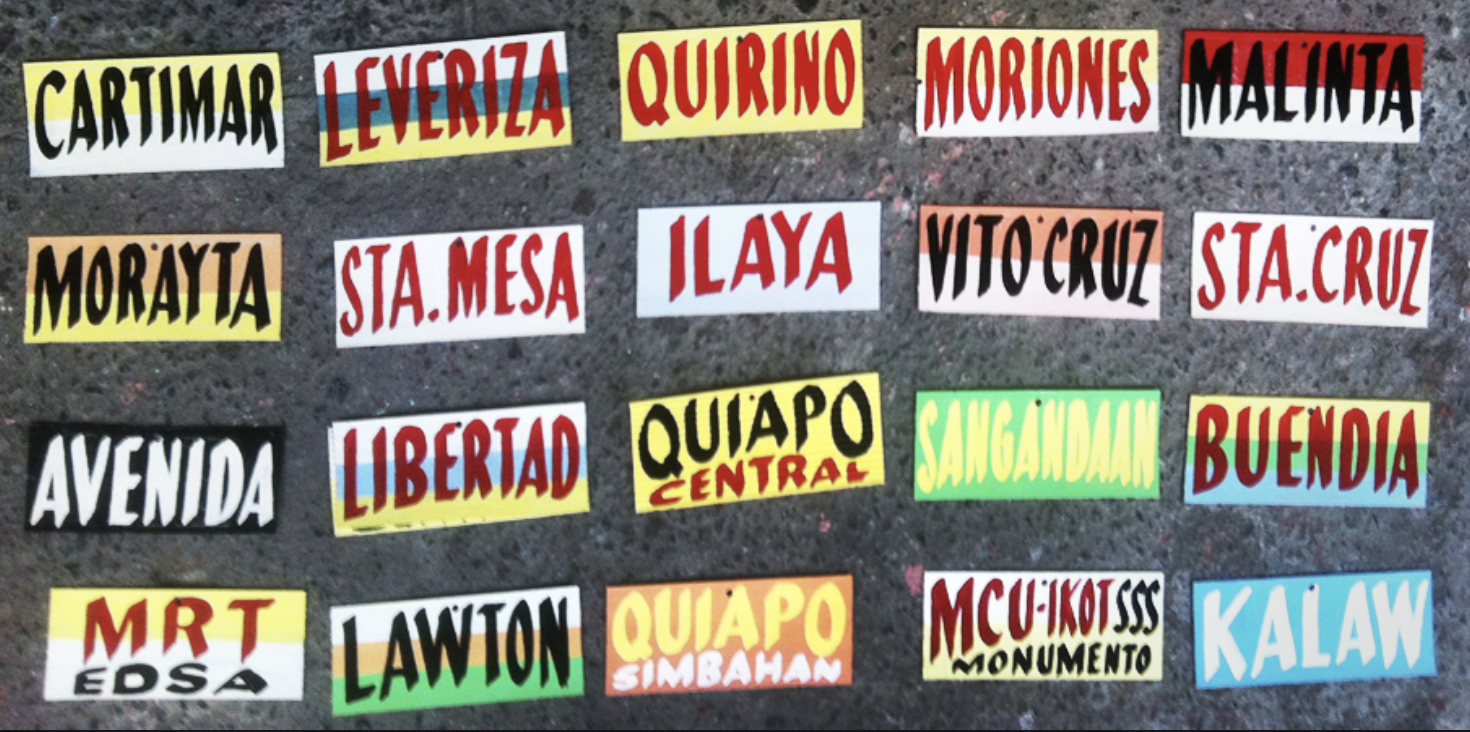 CARTIMAR
LEVERIZA
QUIRINO
MORIONES
MALINTA
MORAYTA
STA. MESA
ILAYA
VITO CRUZ
STA. CRUZ
AVENIDA
LIBERTAD
QUIAPO
CENTRAL
SANGANDAAN
BUENDIA
MRT
EDSA
LAWTON
QUIAPO
SIMBAHAN
MCU-IKOT SSS
MONUMENTO
KALAW